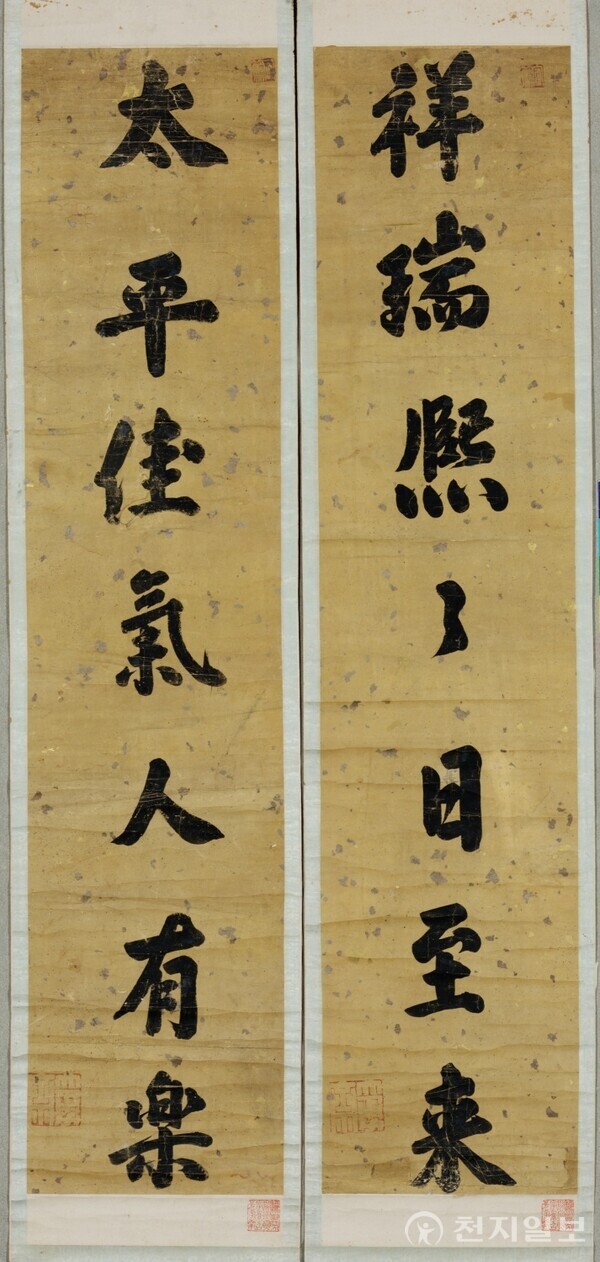 祥瑞熙〻日至来
太平佳氣人有樂
천지일보